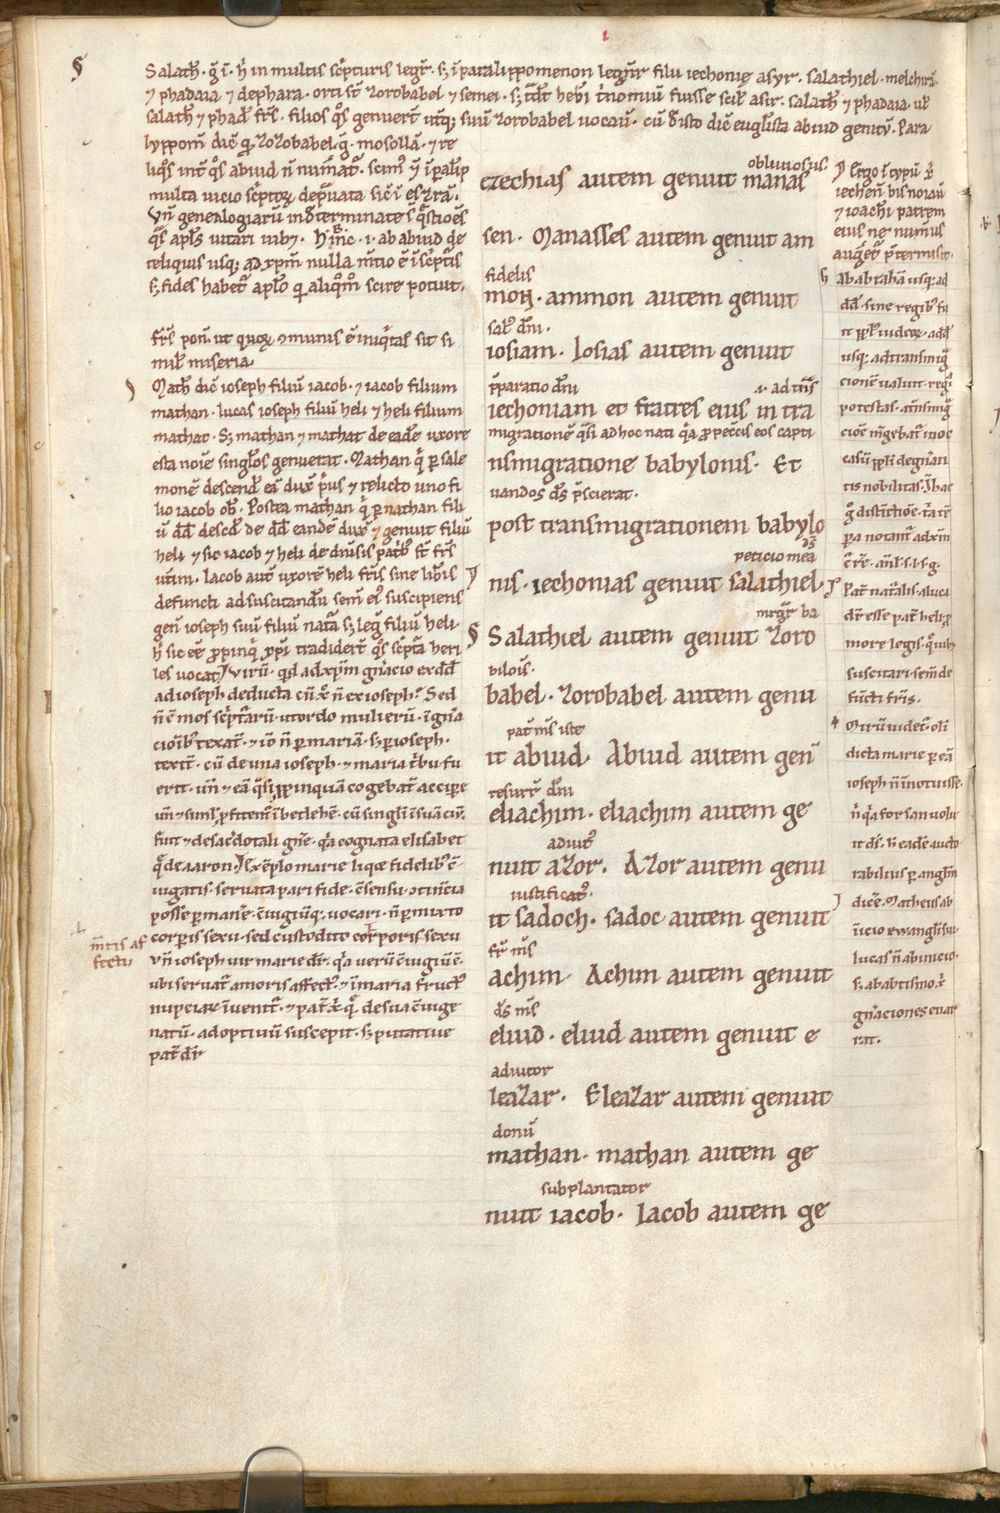 §
Salath̄. g̃ ī. h̄ in multis sc̄pturis leḡr. sʒ ī paralippomenon leguñr filii iechonię asyr. salathiel. melchirā.
⁊ phadaia ⁊ dephara. orti st̄ zorobabel ⁊ semei.
salath̄ ⁊ phad̄ fr̄s. filios q̊s genuert̄ utq; suū zorobabel uocaū. cū d̄isto dic̄ eugl̄ista abiud genitū. Para
lyppom̄ dic̄ zorobabel. g̃. mosollā. ⁊ re
liq̊s int̄ q̊s abiud n̄ num̄at̃.
multa uicio sc̄ptoꝝ dep̄uata sic̄ ī esdra.
Vn̄ genealogiarū indeterminate s̄ q̄stiōes
q̊s apl̄s uitari iubꝫ. h̄inc̄. i. ab abiud de
reliquis usq; ad xp̄m nulla m̄tio ē ī sc̄ptis
sʒ fides habet̄ apl̄o q̄ aliq̊m̊ scire potuit.
fr̄s pon̄. ut quoꝝ cōmunis ē iniq̄tas sit si
mil̄ miseria.
Math̄ dic̄ ioseph filiū iacob. ⁊ iacob filium
mathan. lucas ioseph filiū heli ⁊ heli filium
mathat. Sʒ mathan ⁊ mathat de eadē uxore
esta noīe singl̄os genuerat. Mathan q̄ p̄ sale
monē descend̄ eā dux̄ p̄us ⁊ relicto uno fi
lio iacob ob̄. Postea mathan q̄ p̄ nathan fili
ū dd̄ descd̄ de dd̄ eandē dux̄ ⁊ genuit filiū
heli ⁊ sic iacob ⁊ heli de diūsis pat̄b; st̄ fr̄s
ut̄ini. Iacob aut̄ uxorē heli fr̄is sine lib̄is
defuncti ad suscitandū sem̄ ei; suscipiens
gen̄ ioseph suū filiū nat̄a sʒ leg̃ filiū heli.
les uocat̃. Virū. qd̄ ad xp̄m gn̄acio ex dd̄
ad ioseph deducta cū x̄ n̄ ex ioseph? Sed
n̄ ē mos sc̄pt̄arū ut ordo mulierū. ī gn̄a
cioīb; texat̄. ⁊ iō n̄ p̄ mariā. sʒ p̄ ioseph.
texit̄. cū de una ioseph. ⁊ maria t̄bu fu
erit. un̄ ⁊ eā q̄si ppinquā cogebat̄ accipe
un̄ ⁊ simul p̄fitent̄ ī betleheē. cū singl̄i ī suā ciū.
fuit ⁊ de sac̄dotali gn̄e. q̄a cognata elisabet
q̄ de aaron. Exēplo marie liq̄ fidelib; ē
iugatis. seruata pari fide. ēsensu ɔtinēcia
posse p̄manē. ɔiugiūq; uocari. n̄ p̄mixto
corporis sexu. sed custodito corporis sexu
m̄tis af
fectu
Vn̄ ioseph uir marie dr̄. q̄a uerū ɔiugiū ē.
ubi seruat̄ amoris affect;. ⁊ ī maria fruct;
nupciaꝝ īuenit̄. ⁊ pat̄ x̄ q̄ de sua ɔiuge
natū. adoptiuū suscepit. sʒ putatiue
pat̄ dr̄
obliuiosus.
ezechias autem genuit manas
sen. Manasses autem genuit am
fidelis
mon. ammon autem genuit
sal; dn̄i.
iosiam. Iosias autem genuit
p̄paratio dn̄i    .i. ad tn̄s
iechoniam et fratres eius in tra
migrationē q̄si ad hoc nati q̄a p peccīs eos capti
nsmigratione babylonis. Et
uandos ds̄ p̄scierat.
post transmigrationem babylo
peticio mea ds̄
nis. iechonias genuit salathiel.
mr̄ḡr ba
§ Salathiel autem genuit zoro
biloīs.
babel. zorobabel autem genu
pat̄ m̄s iste
it abiud. Abiud autem gen̄
resurr̄ dn̄i
eliachim. eliachim autem ge
adiut;
nuit azor. Azor autem genu
iustificat;.
it sadoch. sadoc autem genuit
fr̄ m̄s
achim. Achim autem genuit
ds̄ m̄s
eliud. eliud autem genuit e
adiutor
leazar. Eleazar autem genuit
donū
mathan. mathan autem ge
subplantator
nuit iacob. Iacob autem ge
Ergo ī typū x̄
iechon̄ bis noīaū
⁊ ioachī patrem
eius ne num̄us
auger̄et p̄termisit.
Ab abrahā usq; ad
dd̄. sine regib; fu
it ppl̄s iudeoꝝ. a dd̄
usq; ad transmig̃
cionē ualuit. regī
potestas. a tn̄smig̃
ciōe m̄gebat̄ in oc
casū ppl̄i degn̄ani
tis nobilitas.
g̊ distinctiōe. t̄ta t̄e
pa notant̄ ad xp̄m
Pat̄ nat̄alis. aluci
dr̄ esse pat̄ heli. p
more legis. q̄ iub;
suscitari. sem̄ de
fūcti fr̄is.
Mirū uidet̄. oli
dicta marie p eā
ioseph n̄ inotuisse.
n̄ q̄a forsan uolu
it ds̄. h̄ eadē aucto
rabilius p angl̄m
dic̄e. Matheus ab
īicio ewangl̄ii sui
lucas n̄ ab inicio.
sʒ a babtismo. x̄
gn̄aciones enar
rat.